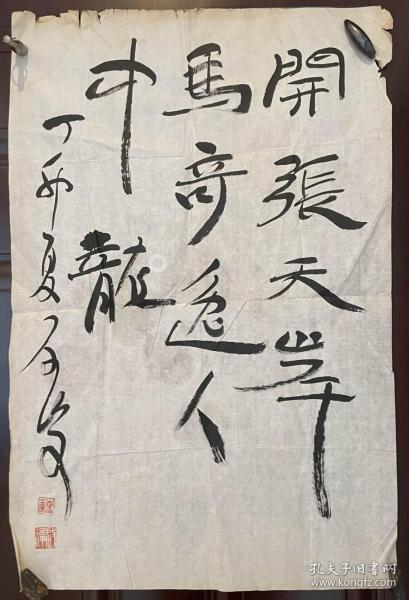 開張天岸
馬奇逸人
中龍
丁卯夏
孔夫子旧书网
www.kongfz.com